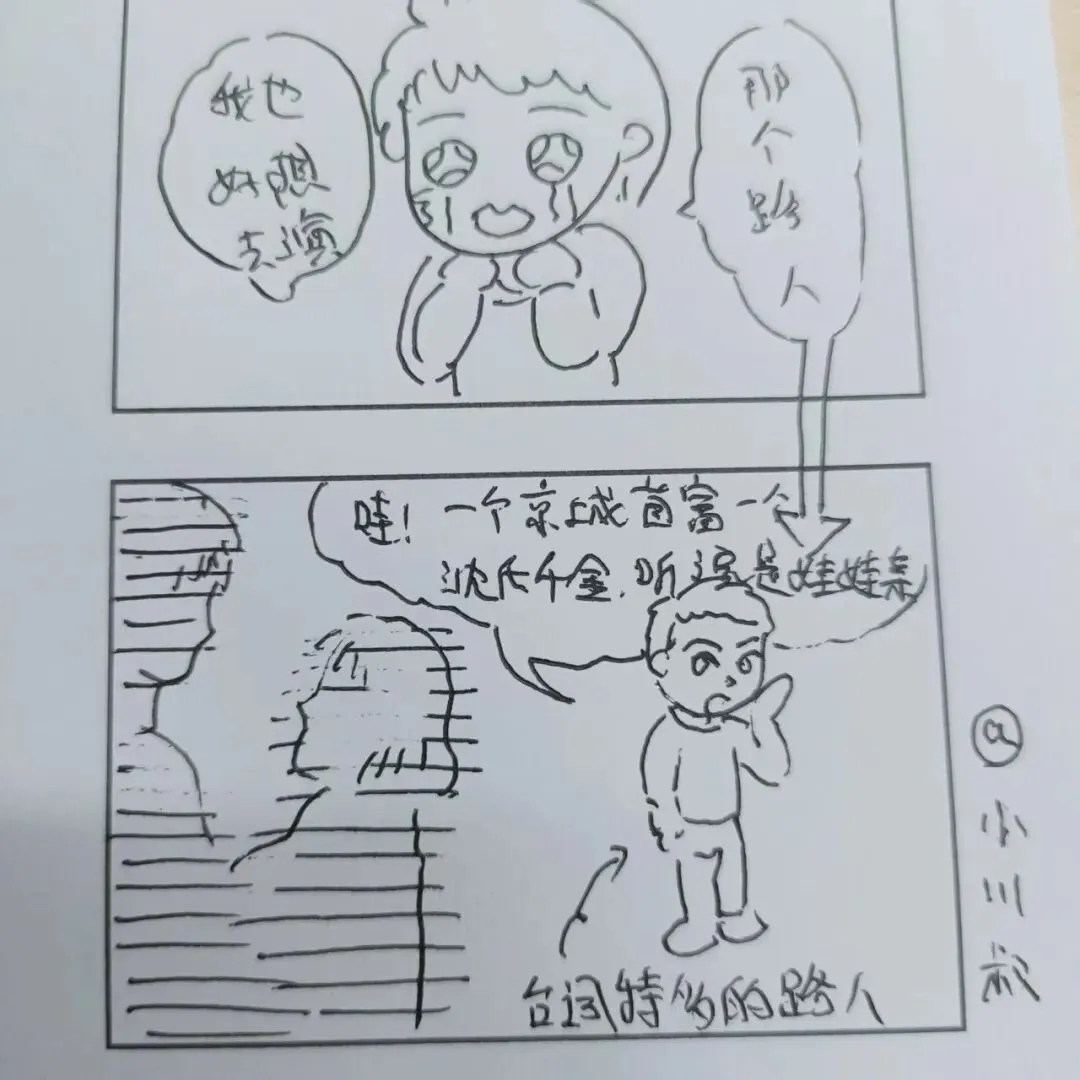 我也
好想
去演
那
个
路
人
哇！一个京城首富一个
沈氏千金，听说是娃娃亲
台词特多的路人
@
小
川